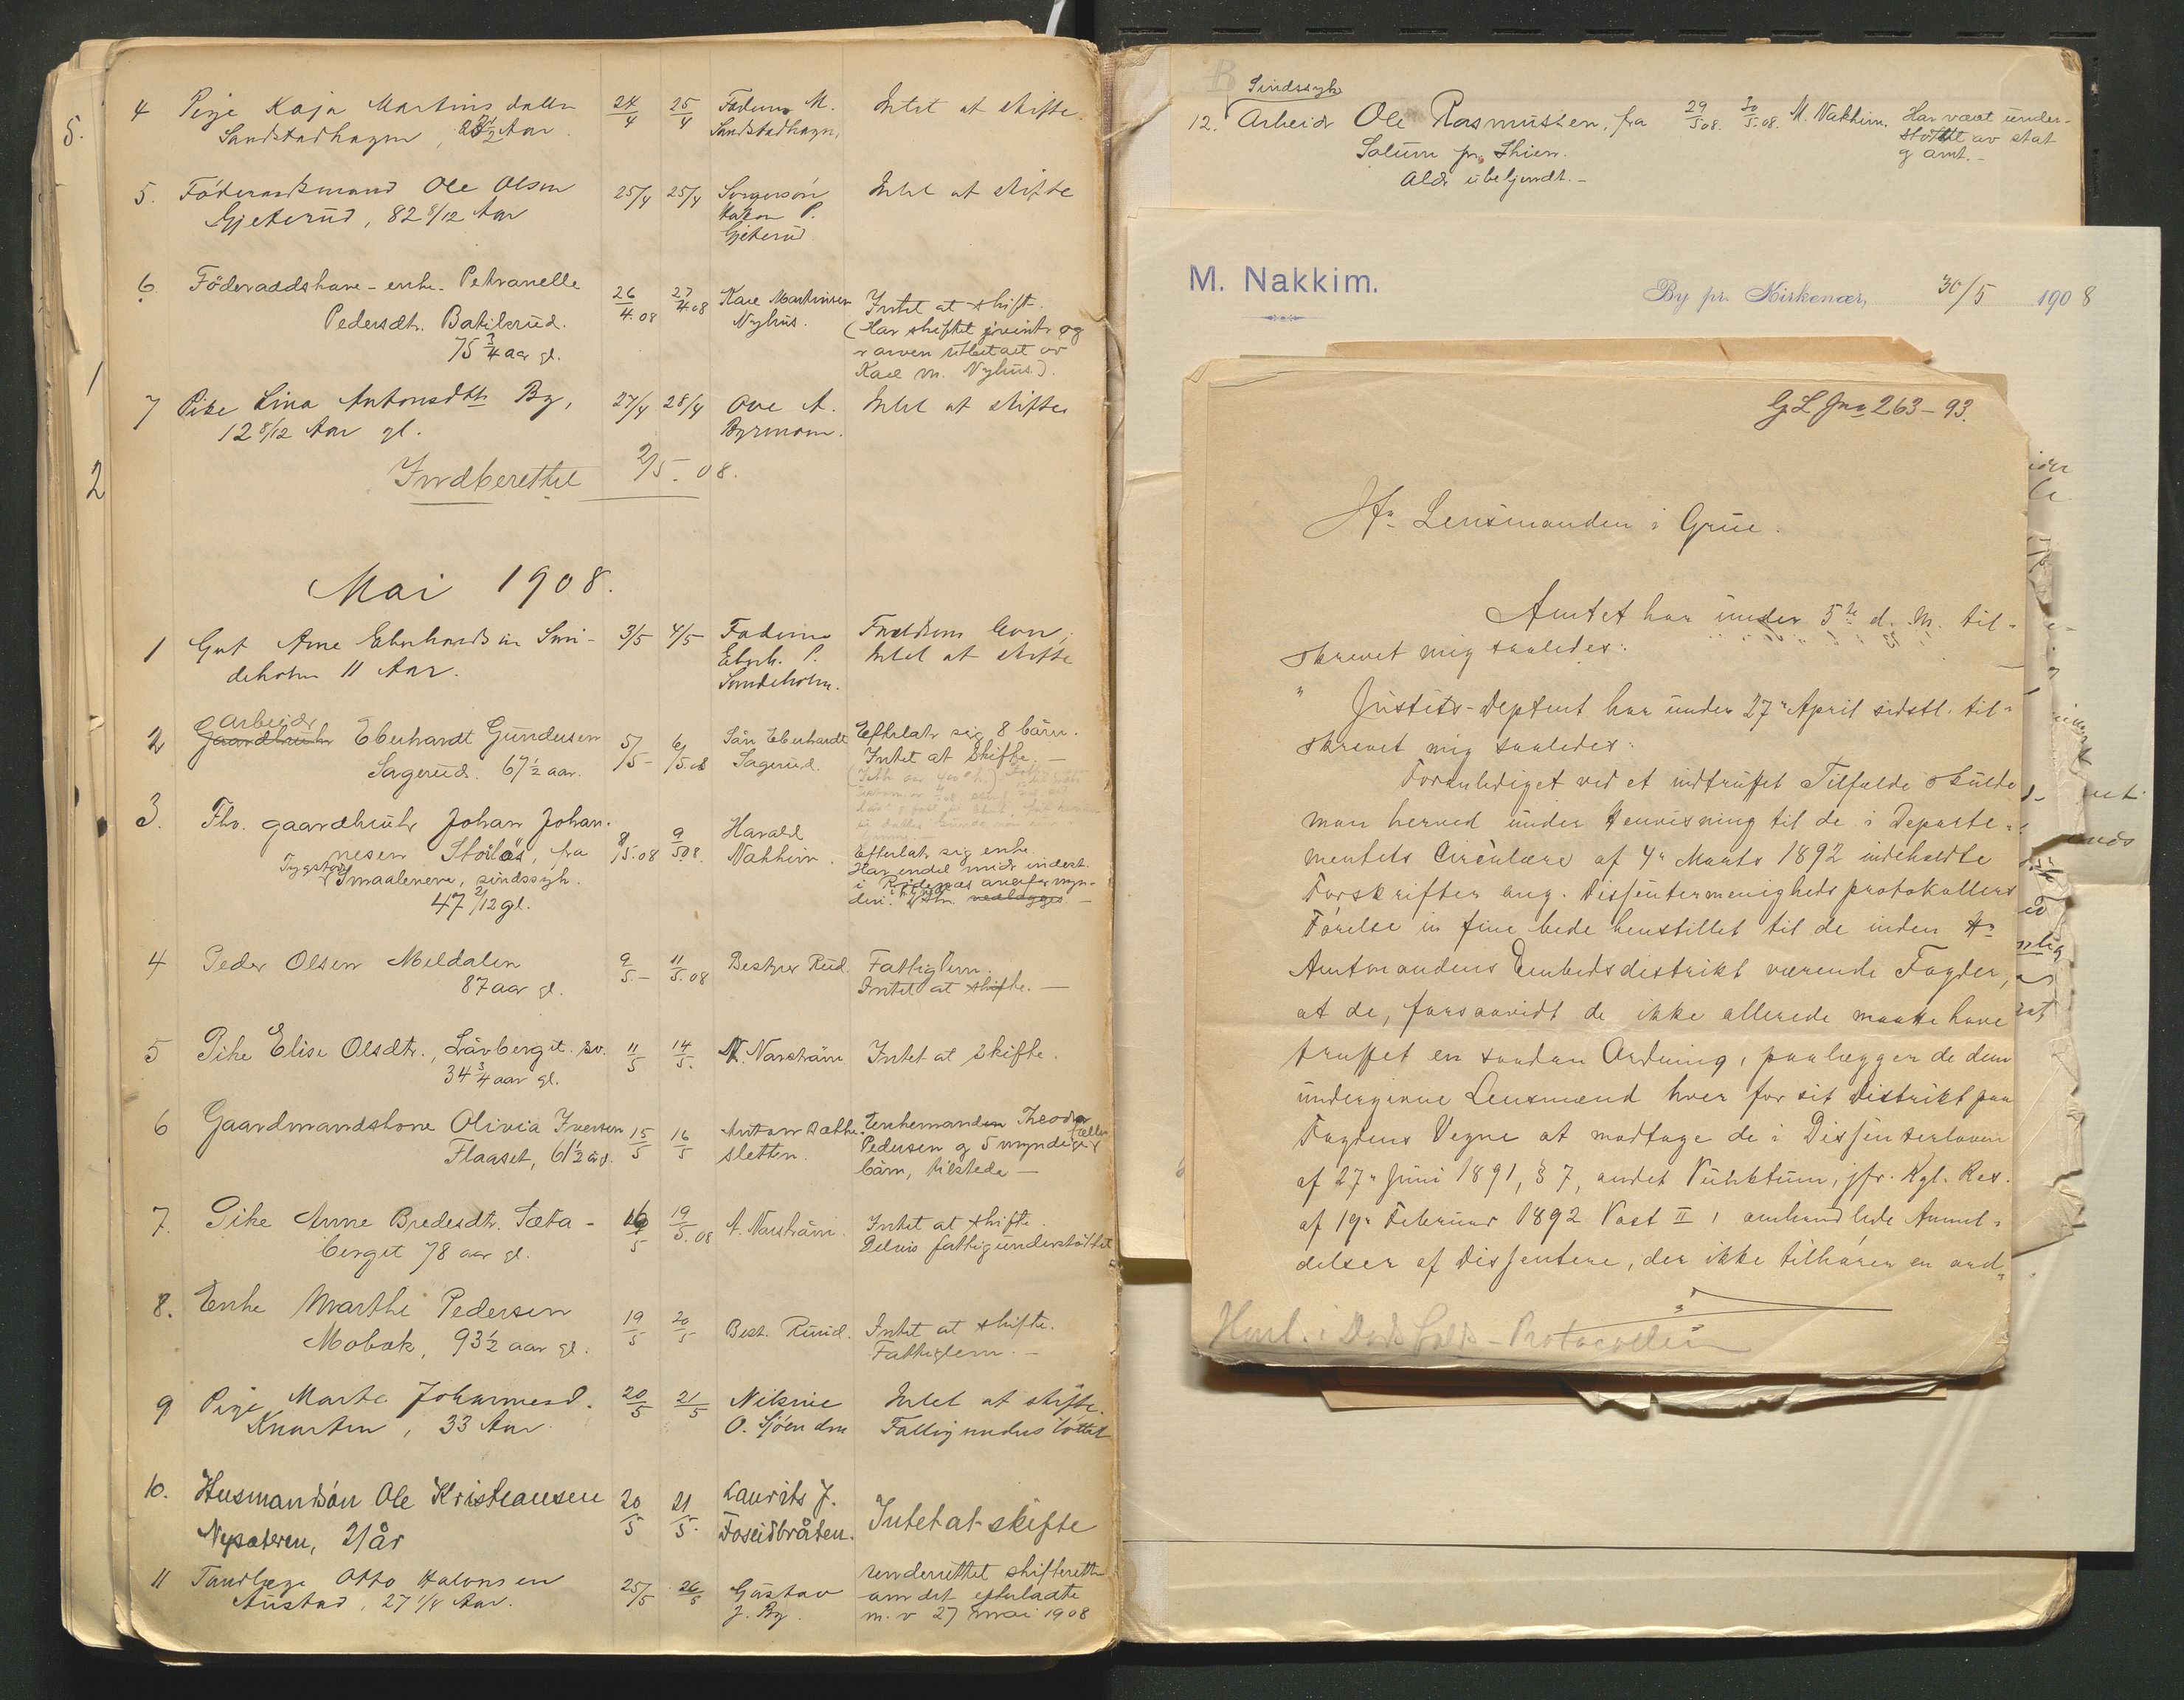 5.
4 Pige Kaja Martinsdatter 24/4 25/4 Faderen M. Intet at skifte.
Sandstadhagen, Aar Sandstadhagen,
5. Föderaadsmand Ole Olsen 25/4 25/4 Intet at skifte
Gjeterud, 82 8/12 Aar Gjeterud
6. Föderaadskone - enke Petranelle 26/4.08 27/4.08 Kare Martinsen Intet at skift-
Pedersdtr. Batilrud. Nyhus. (Har skiftet og
75 3/4 aar gl. arven utbetalt av
Kare M. Nyhus).
1
7 Pike Lina Antonsdtr By, 27/4 28/4 Ove A. Intet at skifte
12 8/12 Aar gl. Byrmoen.
2
Indberettet 2/5. 08.
Mai 1908.
1 Gut Arne Eberhardsen Smi- 3/5 4/5 Faderen Forældrene lever,
deholm 11 Aar. Eberh. P. Intet at skifte
2 Arbeider Gaardbruker Eberhardt Gundersen 5/5- 6/5.08 Sön Eberhardt Efterlater sig 8 börn.
Sagerud. 67 1/2 aar. Sagerud. Intet at skifte.-
3. Fhv. gaardbruker Johan Johan- 8/5.08 9/5 08. Harald
nesen Storlös, fra Nakkim. Efterlater sig enke.
Smaalenene, sindssyk. Har endel midr indest.
47 2/12 gl. i
4 Peder Olsen Meldalen 9/5.- 11/5.08 Bestyrer Rud. Fattiglem.
87 aar gl. Intet at skifte.-
5 Pike Elise Olsdtr., Lövberget. 11/5 14/5. N. Narström. Intet at skifte.
34 3/4 aar gl.
6 Gaardmandskone Olivia Iversen 15/5 16/5 Anton Sæthe- Enkemanden Theodor
Flaaset, 61 1/2 år. sletten. Pedersen og 5 myndige
börn, tilstede -
7. Pike Anne Bredesdtr. Sæta- 16/5 19/5.08 A. Narström. Intet at skifte.
berget 78 aar gl. Delvis fattigunderstöttet
8. Enke Marthe Pedersen 19/5 20/5 Best. Ruud. Intet at skifte.
Mobæk, 93 1/2 aar gl. Fattiglem.-
9 Pige Marte Johannesd. 20/5 21/5 Nilsine Intet at skifte.
Knarten, 33 Aar O. Sjöenden Fattigunderstöttet
10. Husmandsön Ole Kristiansen 20/5 21/5. Laurits J. Intet at skifte
Nysæteren, 21 år Foseidbråten.
11 Tandlæge Otto Halvorsen 25/5 26/5 Gustav underrettet skifteretten
Austad, 27 1/4 Aar. J. By. om det efterladte
m. v 27 mai 1908
Sindssyk
12. Arbeider Ole Rasmussen, fra 29/5 08. 30/5.08. M. Nakkim. Har været under-
Solum pr. Skien. støttet av stat
Alder ubekjendt.- og amt.-
M. Nakkim.
By pr. Kirkenær, 30/5 1908
GL Jno 263-93.
Hr. Lensmanden i Grue.
Amtet har under 5te d. M. til-
skrevet mig saaledes:
" Justits-Deptent har under 27de April sidstl. til-
skrevet mig saaledes:
Foranlediget ved et indtruffet Tilfælde skulde
man herved under Henvisning til de i Departe-
mentets Circulære af 4de Marts 1892 indeholdte
Forskrifter ang. Dissentermenighedsprotokollers
Førelse in fine bede henstillet til de inden Hr
Amtmandens Embedsdistrikt værende Fogder,
at de, forsaavidt de ikke allerede maatte have
truffet en saadan Ordning, paalægger de dem
undergivne Lensmænd hver for sit Distrikt paa
Fogdens Vegne at modtage de i Dissenterloven
af 27de Juni 1891, § 7, andet Punktum, jfr. Kgl. Res.
af 19de Februar 1892 Post II, omhandlede Anmel-
delser af Dissentere, der ikke tilhører en ord-
Henl. i Dødsfalds-Protocollen